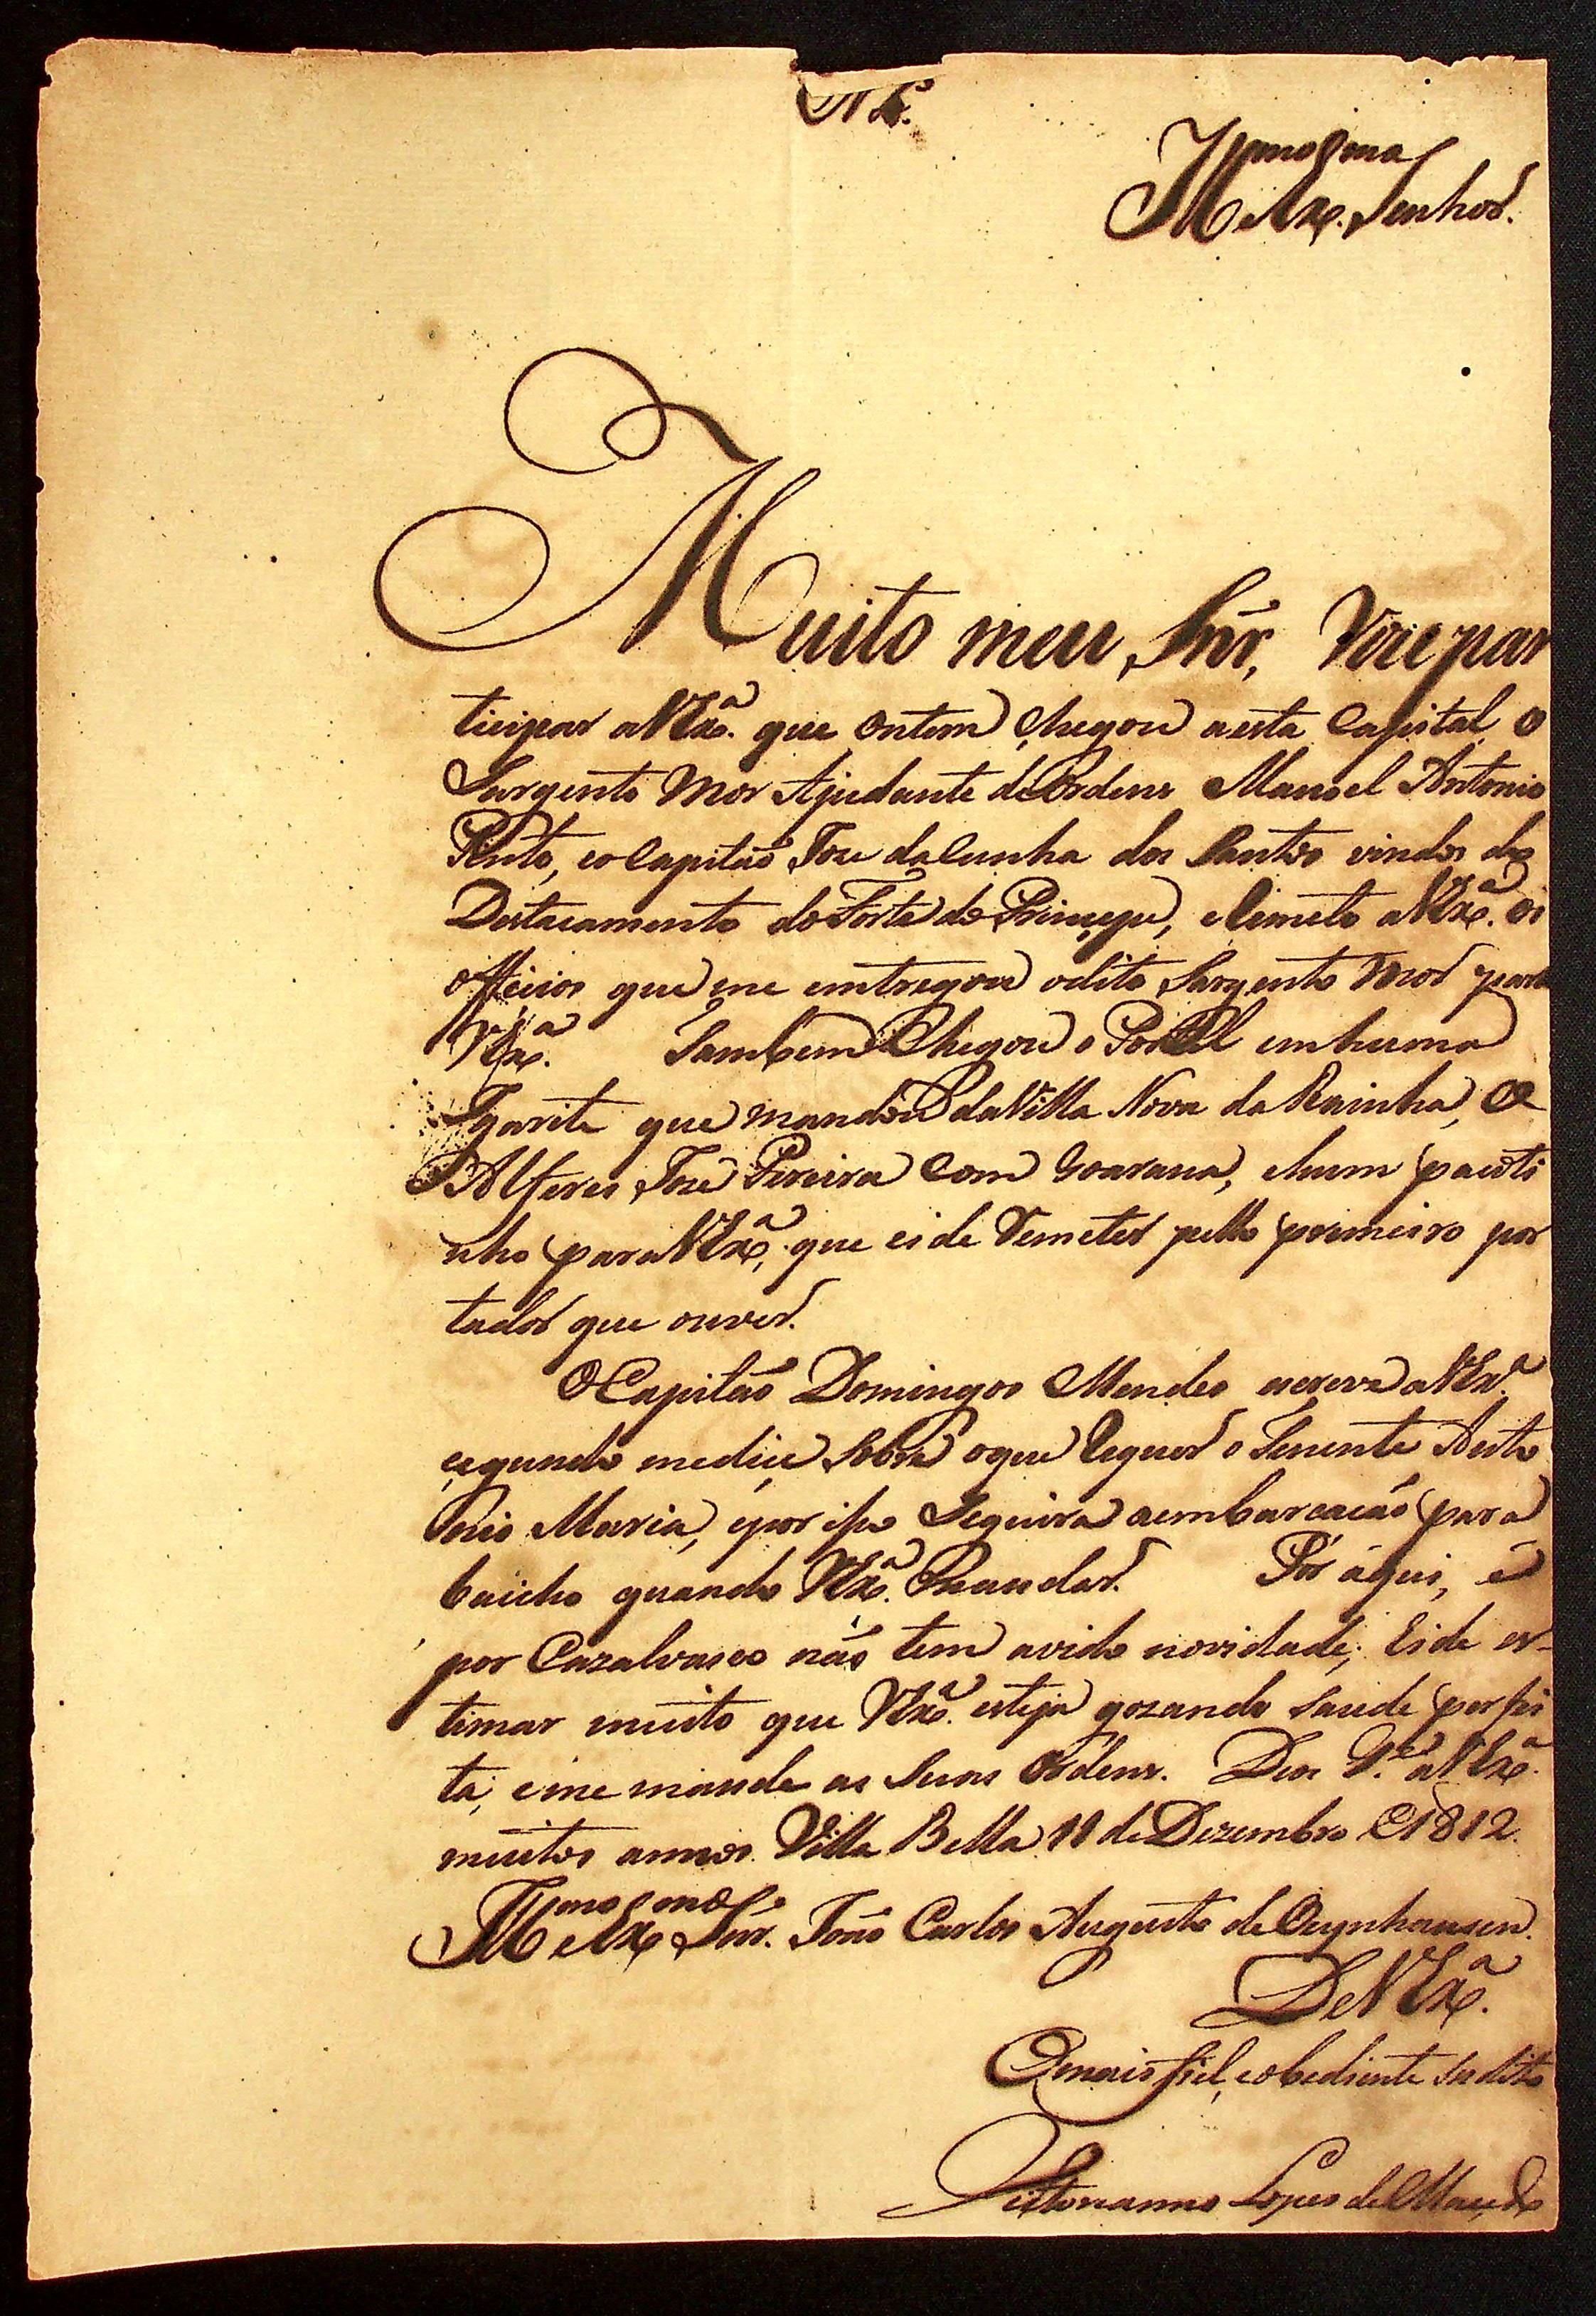 Illmo e Exmo Senhor.
Muito meu Snr, Vou par
ticipar a VExa. que ontem chegou a esta Capital o
Sargento Mor Ajudante de Ordens Manoel Antonio
Pinto, e o Capitaõ Joze da Cunha dos Santos vindos do
Destacamento do Forte do Principe, e Remeto a VExa. os
officios que me emtregou o dito Sargento Mor para
VExa. Tambem Chegou o em huma
Igarite que mandou da Villa Nova da Rainha, O
Alferes Joze Pereira Com Goarana, e hum pacoti
nho para VExa; que ei de Remeter pello primeiro por
tador que ouver.
O Capitaõ Domingos Mendes escreve a VExa.
segundo me diçe Sobre o que Requer o Tenente Anto
nio Maria, e por iso Seguira a embarcacaõ para
baicho quando VExa. Mandar. Por aqui, e
por Cazalvasco naõ tem avido novidade; Ei de es-
timar muito que VExa. esteja gozando Saude perfei
ta, e me mande as Suas Ordens. Deos Gde. a VExa.
muitos annos. Villa Bella 11 de Dezembro 1812.
Illmo e Exmo Snr. Joaõ Carlos Augusto de Oeynhausen.
De VExa.
O mais fiel, e obediente Sudito
Victorianno Lopes de Macedo